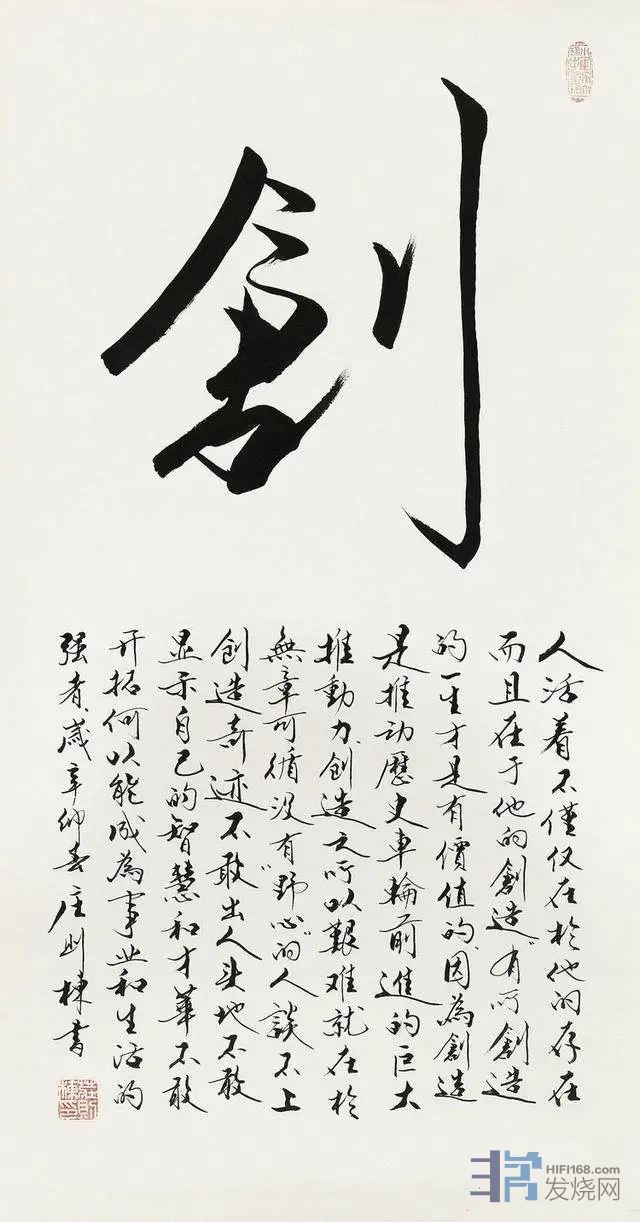 創
人活着不僅仅在於他的存在
而且在于他的創造"有所創造
的一生才是有價值的"因為創造
是推动歷史車輪前進的巨大
推動力"創造之所以艱难就在於
無章可循没有"野心"的人談不上
创造奇迹不敢出人头地不敢
显示自己的智慧和才華不敢
开拓何以能成為事业和生活的
强者"歲辛卯春庄则棟書
莊則棟印
HIFI168.com
发烧网